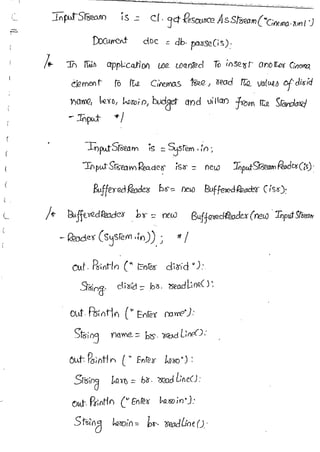 InputStream is = cl.getResourceAsStream("Cinema.xml");
Document doc = db.parse(is);
/* In this application we wanted to insert another Cinema
element to the Cinemas tree, read the values of dirid
name, hero, heroin, budget and villan from the Standard
- Input */
InputStream is = System.in;
InputStreamReader isr = new InputStreamReader(is);
BufferedReader br = new BufferedReader(isr);
/* BufferedReader br = new BufferedReader(new InputStream
- Reader(System.in)); */
out.println("Enter dirid");
String dirid = br.readLine();
out.println("Enter name");
String name = br.readLine();
out.println("Enter hero");
String hero = br.readLine();
out.println("Enter heroin");
String heroin = br.readLine();